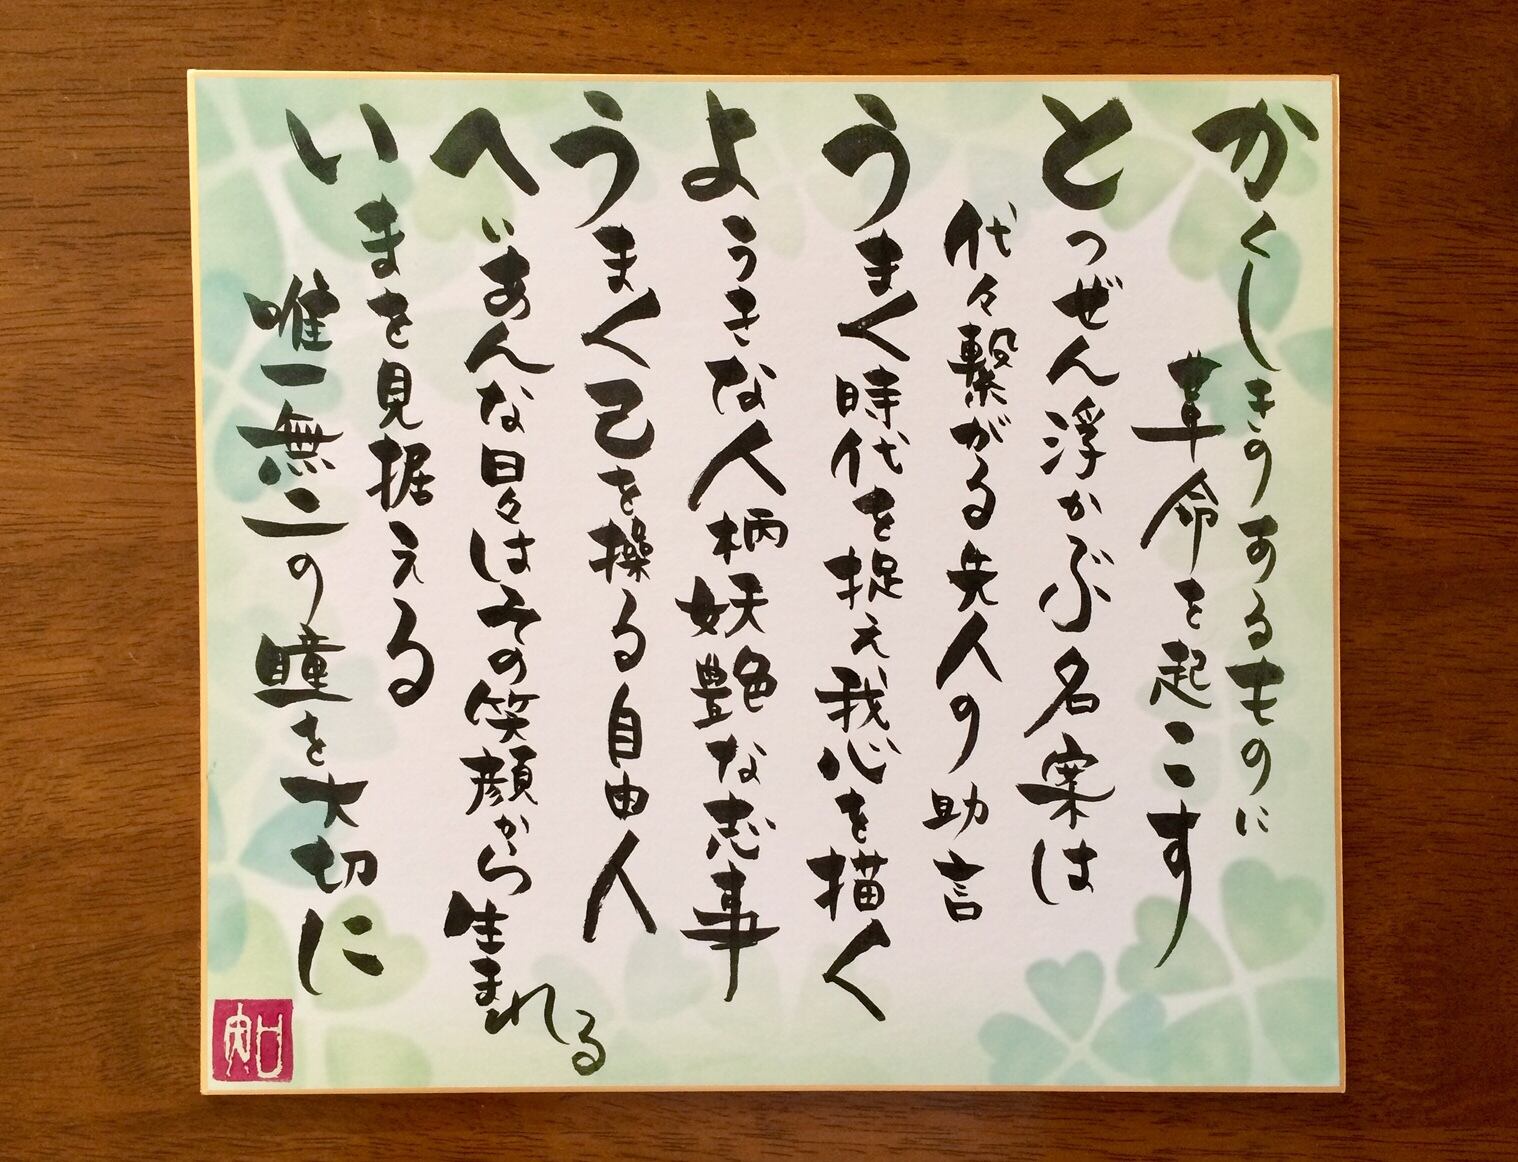 かくしきのあるものに
革命を起こす
とつぜん浮かぶ名案は
代々繋がる先人の助言
うまく時代を捉え我心を描く
ようきな人柄妖艶な志事
うまく己を操る自由人
へいあんな日々はその笑顔から生まれる
いまを見据える
唯一無二の瞳を大切に
知